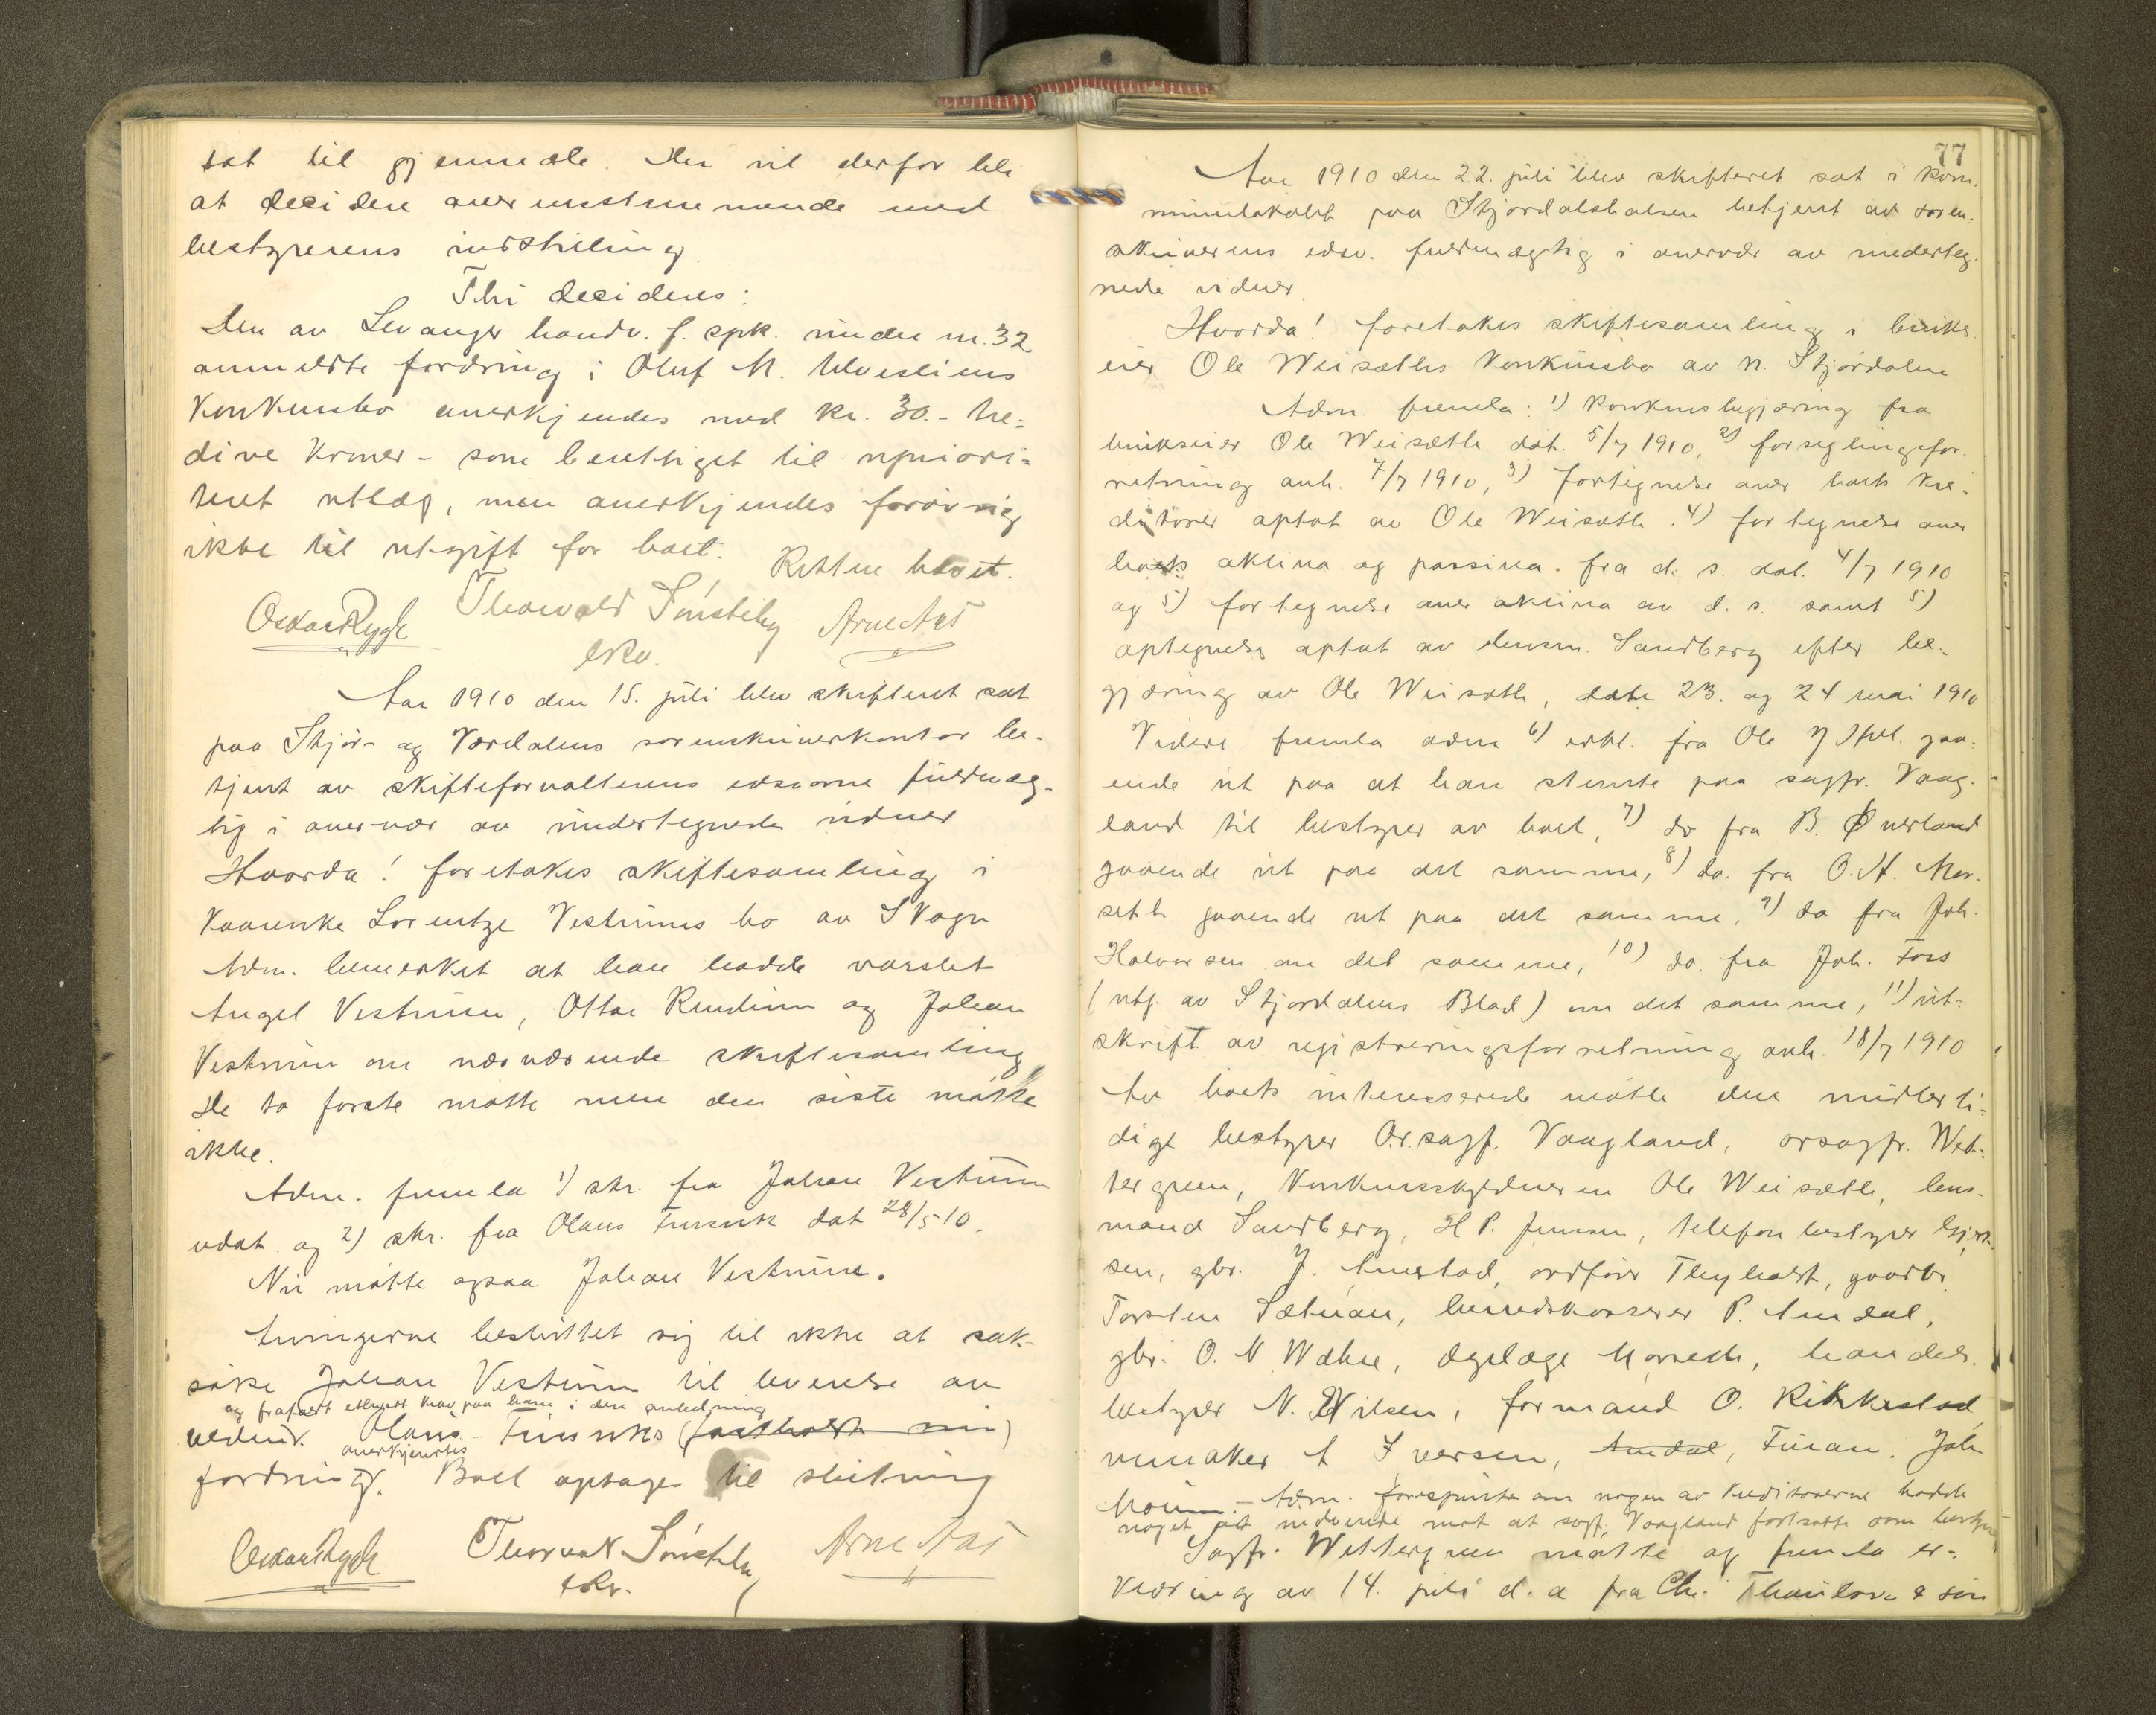 sat til gjennæle. Der vil derfor bli
at decidere overensstemmende med
bestyrerens indstilling
Thi decideres:
Den av Levanger handv. f. spk. under nr. 32
anmeldte fordring i Oluf M. Ulvesliens
Konkursbo anerkjendes med kr. 30.- tre-
dive Kroner - som berettiget til upriori-
teret utlæg, men anerkjendes forøvrig
ikke til utgift for boet. Retten hævet.
Oskar Rygh Thorvald Sonsteby Arne Aas
eRv.
Aar 1910 den 15. juli blev skifteret sat
paa Stjør- og Værdalens sorenskriverkontor be-
tjent av skifteforvalterens edsvorne fuldmæg-
tig i overvær av undertegnede vidner
Hvorda! foretokes skiftesamling i
Kaarenke Lorentze Vestrums bo av Skogn
Adm. bemerket at han hadde varslet
Angel Vestrum, Ottar Rendum og Johan
Vestrum om nærværende skiftesamling
De to første møtte men den siste møtte
ikke.
Adm. fremla 1) skr. fra Johan Vestrum
udat. og 2) skr. fra Olaus dat 28/5 10.
Nu møtte ogsaa Johan Vestrum.
Arvingerne besluttet sig til ikke at sak-
søke Johan Vestrum til levering av
og frafaldt ethvert krav paa ham i den anledning
vedund. Olaus (fastholdt nu)
anerkjendtes
fordring. Boet optages til slutning
Oskar Rygh Thorvald Sonsteby Arne Aas
eRv.
77
Aar 1910 den 22. juli blev skifteret sat i kom-
munelokalet paa Stjørdalshalsen betjent av soren-
skriverens edsv. fuldmægtig i overvær av underteg-
nede vidner.
Hvorda! foretokes skiftesamling i bruks-
eier Ole Weisæths Konkursbo av N. Stjørdalen
Adm. fremla: 1) konkursbegjæring fra
brukseier Ole Weisæth dat. 5/7 1910, 2) forseglingsfor-
retning avh. 7/7 1910, 3) fortegnelse over boets kre-
ditorer optat av Ole Weisæth. 4) fortegnelse over
boets aktiva og passiva. fra d. s. dat. 4/7 1910
og 5) fortegnelse over aktiva av d. s. samt 5)
optegnelse optat av lensm. Sandberg efter be-
gjæring av Ole Weisæth, date 23. og 24 mai 1910
Videre fremla adm 6) erkl. fra Ole J gaa-
ende ut paa at han stemte paa sagfr. Vaag-
land til bestyrer av boet, 7) do fra B. Øverland
gaaende ut paa det samme, 8) do. fra O. H. Mor-
seth gaaende ut paa det samme, 9) do fra Joh.
Halvorsen om det samme, 10) do. fra Joh. Foss
(utg. av Stjørdalens Blad) om det samme, 11) ut-
skrift av registreringsforretning avh. 18/7 1910
Av boets interesserede møtte den midlerti-
dige bestyrer O.r.sagf. Vaagland, orsagfr. Wet-
tergreen, Konkursskyldneren Ole Weisæth, lens-
mand Sandberg, H P. Jensen, telefonbestyrer Gjert-
sen, gbr. J. Arnstad, ordfører Thyholdt, gaardbr
Torsten Sætnan, herredskasserer P. Arndal,
gbr. O. N Wæhre, dyrlæge Morseth, handels-
bestyrer N. Nilsen, formand O. Rikkestad
urmaker A Iversen, Arndal, Joh
Moum. - Adm. forespurte om nogen av kreditorerne hadde
noget at indvende mot at sagf. Vaagland fortsatte som bestyrer
Sagfr. Wettergreen møtte og fremla er-
klæring av 14. juli d. a fra Chr. Thaulow & søn